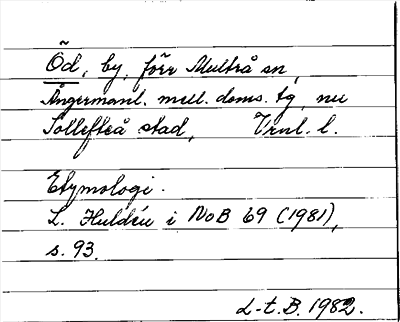 Öd, by, förr Multrå sn,
Ångermanl. mell. doms. tg, nu
Sollefteå stad, Vrnl. l.
Etymologi.
L. Huldén i NoB 69 (1981),
s. 93.
L-t. B. 1982.